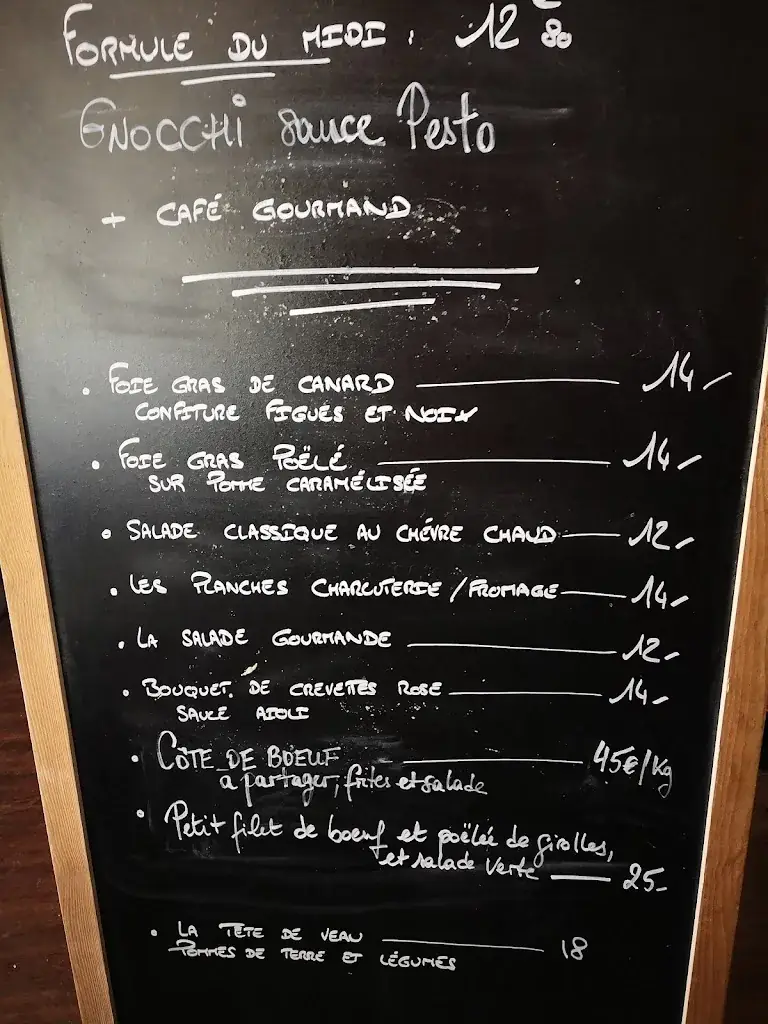 FORMULE DU MIDI : 12€80
GNOCCHI sauce Pesto
+ CAFÉ GOURMAND
• FOIE GRAS DE CANARD — 14-
CONFITURE FIGUES ET NOIX
• FOIE GRAS POËLÉ — 14-
SUR POMME CARAMÉLISÉE
• SALADE CLASSIQUE AU CHÉVRE CHAUD — 12-
• LES PLANCHES CHARCUTERIE / FROMAGE — 14-
• LA SALADE GOURMANDE — 12-
• BOUQUET DE CREVETTES ROSE — 14-
SAUCE AIOLI
• CÔTE DE BOEUF — 45€/Kg
a partager, frites et salade
• Petit filet de boeuf et poëlée de girolles,
et salade verte — 25-
• LA TÊTE DE VEAU — 18
POMMES DE TERRE ET LÉGUMES